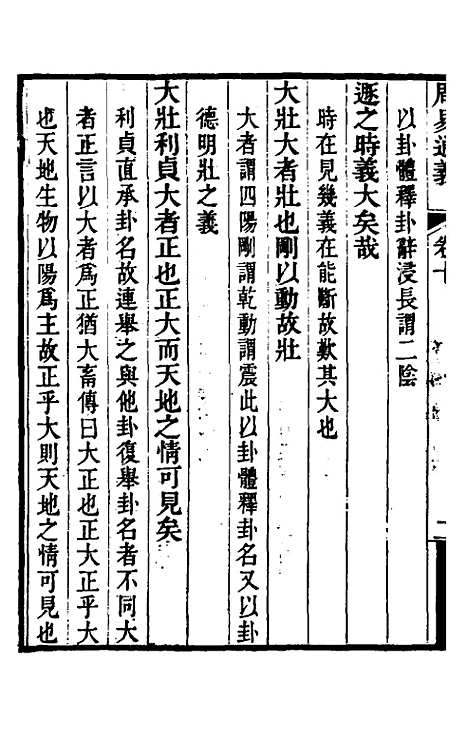 周易通義　卷十
以卦體釋卦辭浸長謂二陰
遯之時義大矣哉
時在見幾義在能斷故歎其大也
大壯大者壯也剛以動故壯
大者謂四陽剛謂乾動謂震此以卦體釋卦名又以卦
德明壯之義
大壯利貞大者正也正大而天地之情可見矣
利貞直承卦名故連舉之與他卦復舉卦名者不同大
者正言以大者爲正猶大畜傳曰大正也正大正乎大
也天地生物以陽爲主故正乎大則天地之情可見也